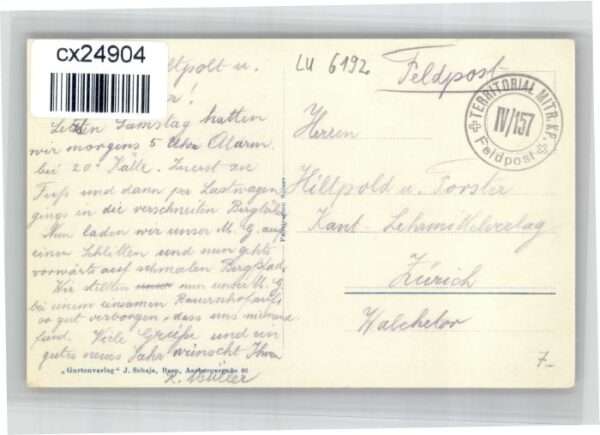 cx24904
LU 6192
Feldpost
TERRITORIAL MITR. KP.
IV/157
Feldpost
ltpolt u.
r!
Letzten Samstag hatten
wir morgens 5 Uhr Alarm
bei 20° Kälte. Zuerst zu
Fuss und dann per Lastwagen
gings in die verschneiten
Nun laden wir unser M. G. auf
einen Schlitten und nun gehts
vorwärts auf schmalem Bergpfad.
Wir stellten nun unser M. G.
bei einem einsamen Bauernhof auf
so gut verborgen, dass uns niemand
fand. Viele Grüsse und ein
gutes neues Jahr wünscht Ihnen
Müller
Herren
Hiltpold u. Forster
Kant. Lehrmittelverlag
Zürich
Walchetor
7.-
„Gartenverlag" J. Schaja, Bern, Aarbergergasse